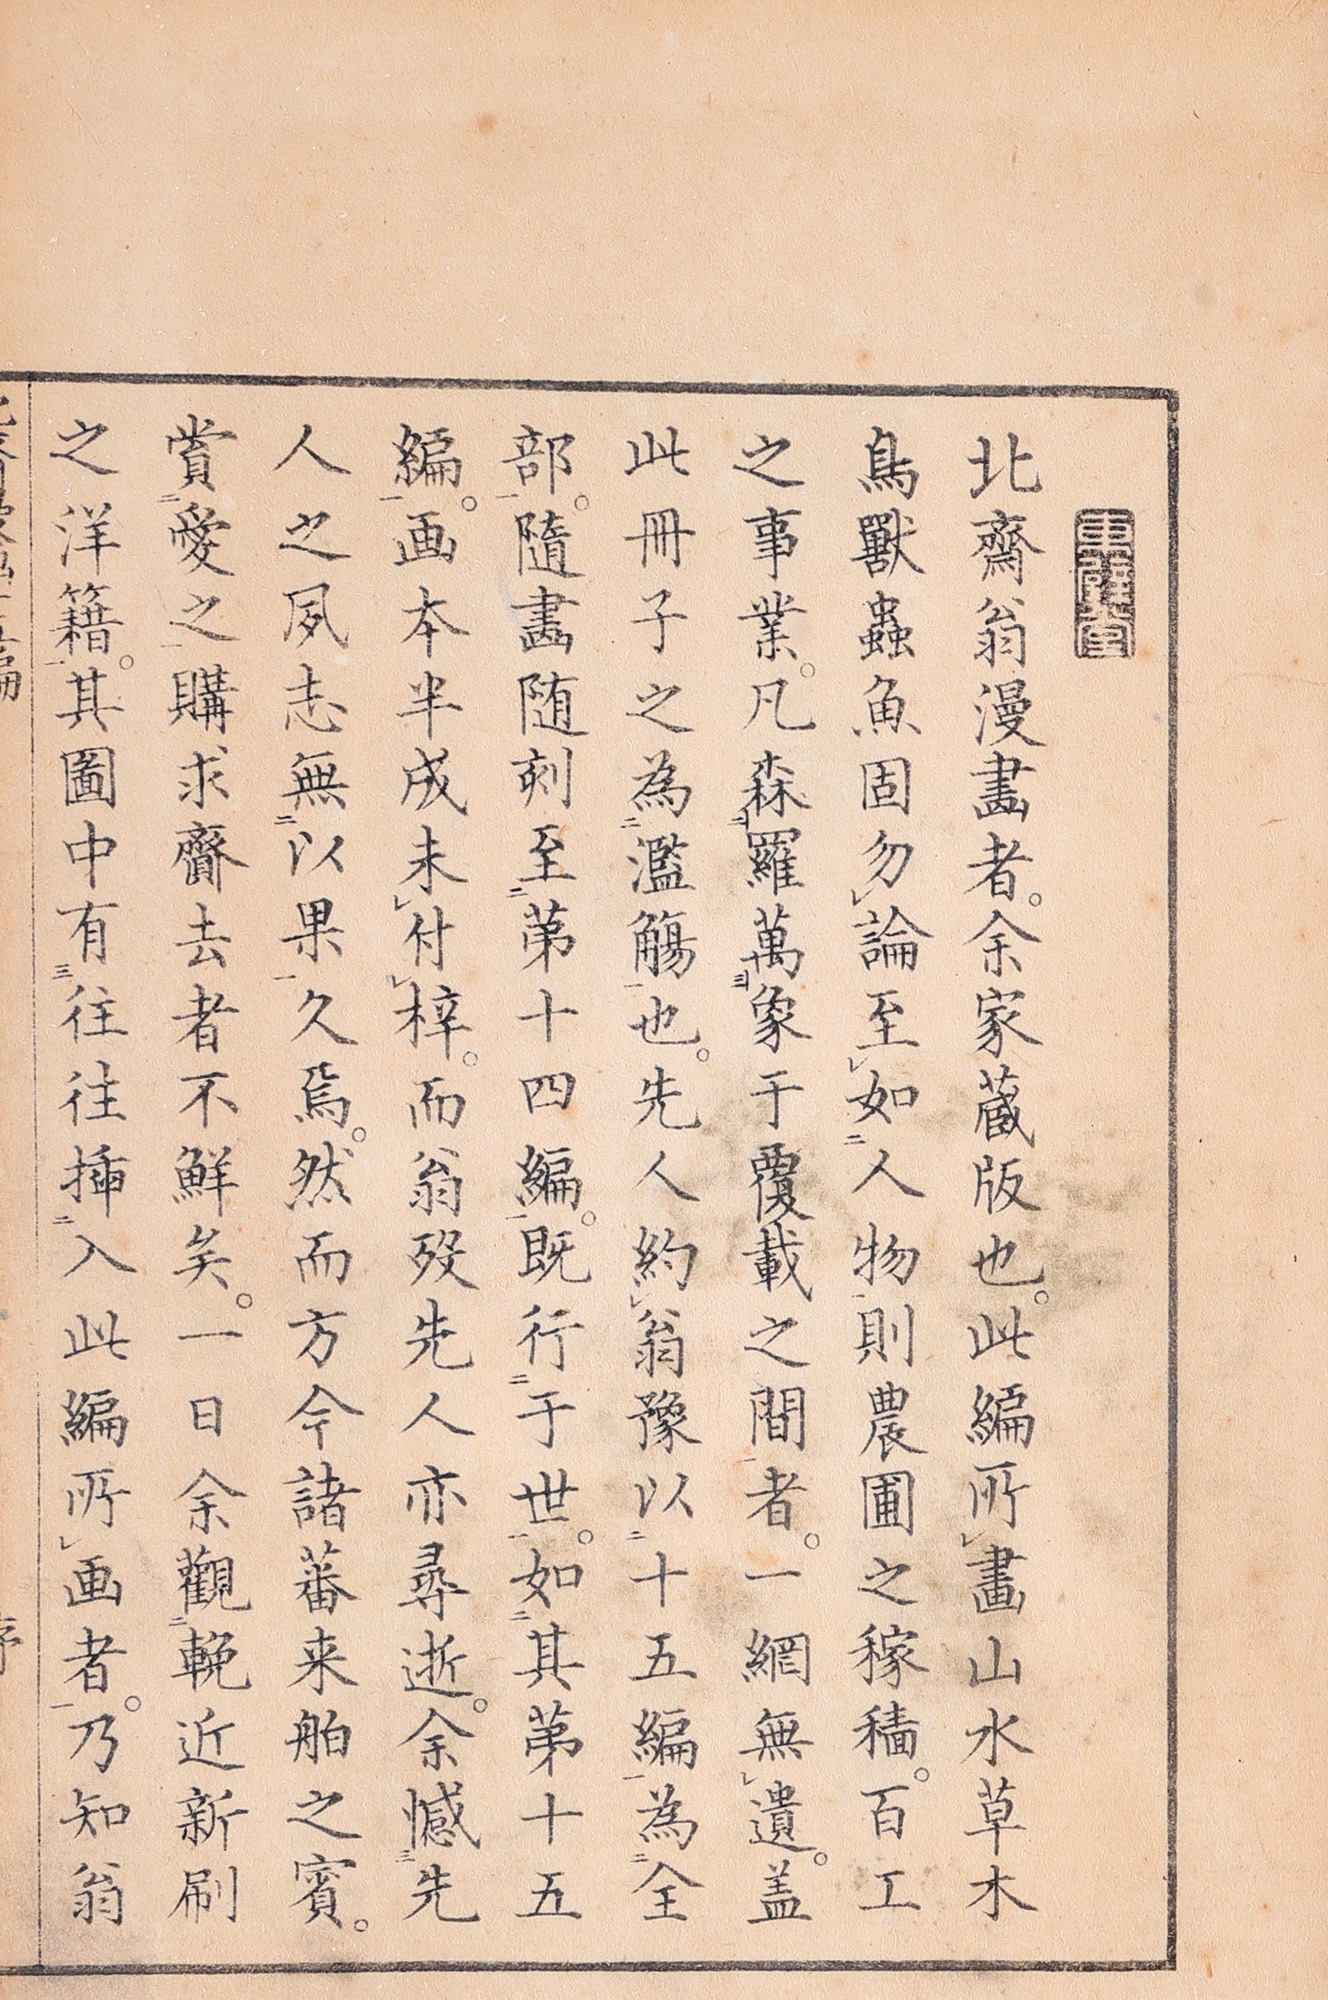 北齋翁漫畫者。余家蔵版也。此編所㆑畫山水草木
鳥獸蟲魚固勿㆑論至㆑如㆓人物㆒則農圃之稼穡。百工
之事業。凡森㆓羅萬㆔象于覆載之間㆒者。一網無㆑遺。盖
此冊子之為㆓濫觴㆒也。先人約㆑翁豫以㆓十五編㆒為㆓全
部㆒。隨畵随刻至㆓第十四編㆒。既行㆓于世㆒。如㆓其第十五
編㆒。画本半成未㆑付㆑梓。而翁歿先人亦尋逝。余憾㆔先
人之夙志無㆓以果㆒久焉。然而方今諸蕃来舶之賓。
賞㆓愛之㆒購求齎去者不鮮矣。一日余觀㆓輓近新刷
之洋籍㆒。其圖中有㆔往往挿㆓入此編所㆑画者㆒。乃知翁
序